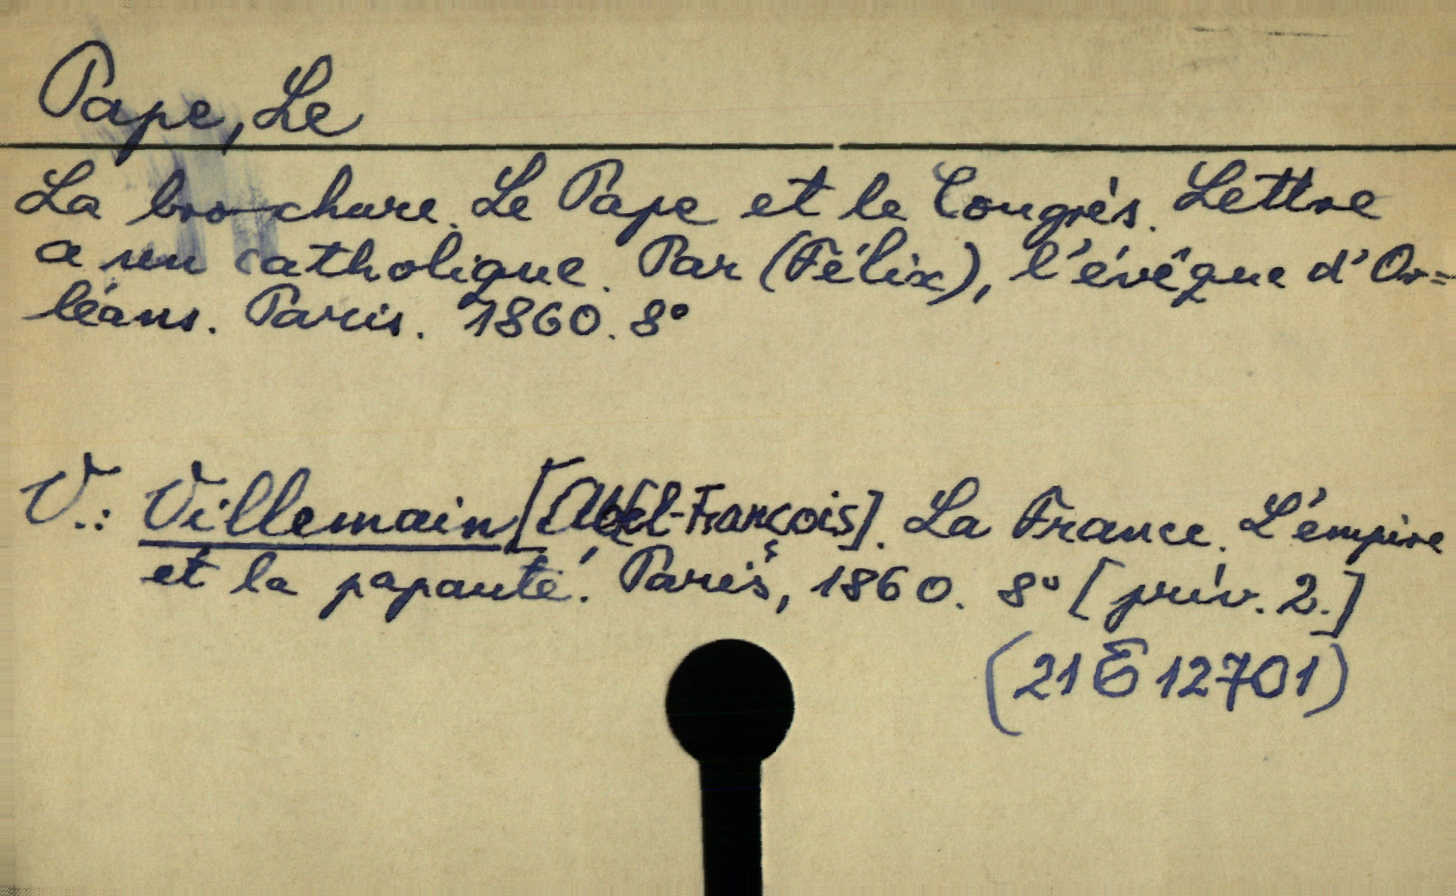 Pape, Le
La brochure. Le Pape et le Congrès. Lettre
a un catholique. Par (Félix), l'évêque d'Or=
léans. Paris. 1860. 8°
V.: Villemain [Abel-François]. La France. L'empire
et la papauté. Paris, 1860. 8° [priv. 2.]
(21 E 12701)